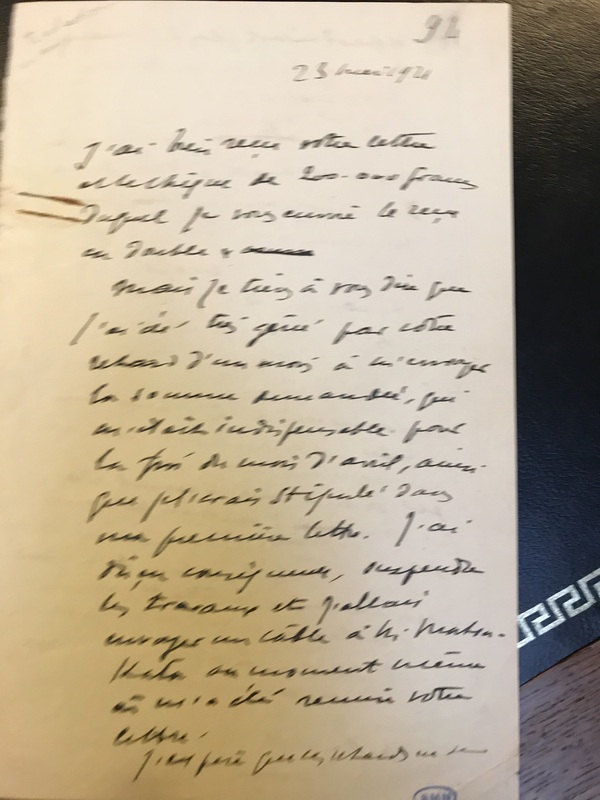 92
23 mai 1921
J'ai bien reçu votre lettre
et le chèque de 200.000 francs
duquel je vous envoie le reçu
en double
Mais je tiens à vous dire que
j'ai été très gêné par votre
retard d'un mois à m'envoyer
la somme demandée, qui
m'était indispensable pour
la fin du mois d'avril, ainsi
que je l'avais stipulé dans
ma première lettre. J'ai
dû, en conséquence, suspendre
les travaux et j'allais
envoyer un câble à M. Matsu-
kata au moment même
où m'a été remise votre
lettre.
J'espère que les retards ne se